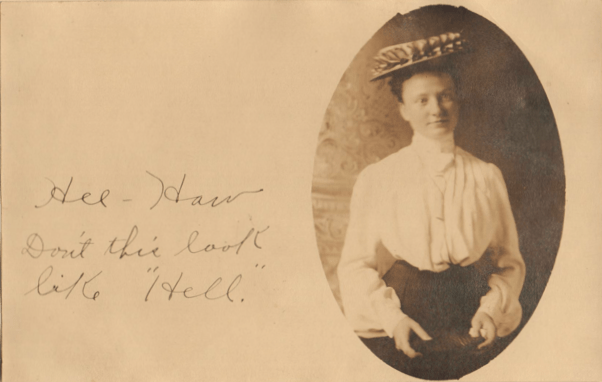 Hee - Haw
Don't this look
like "Hell."